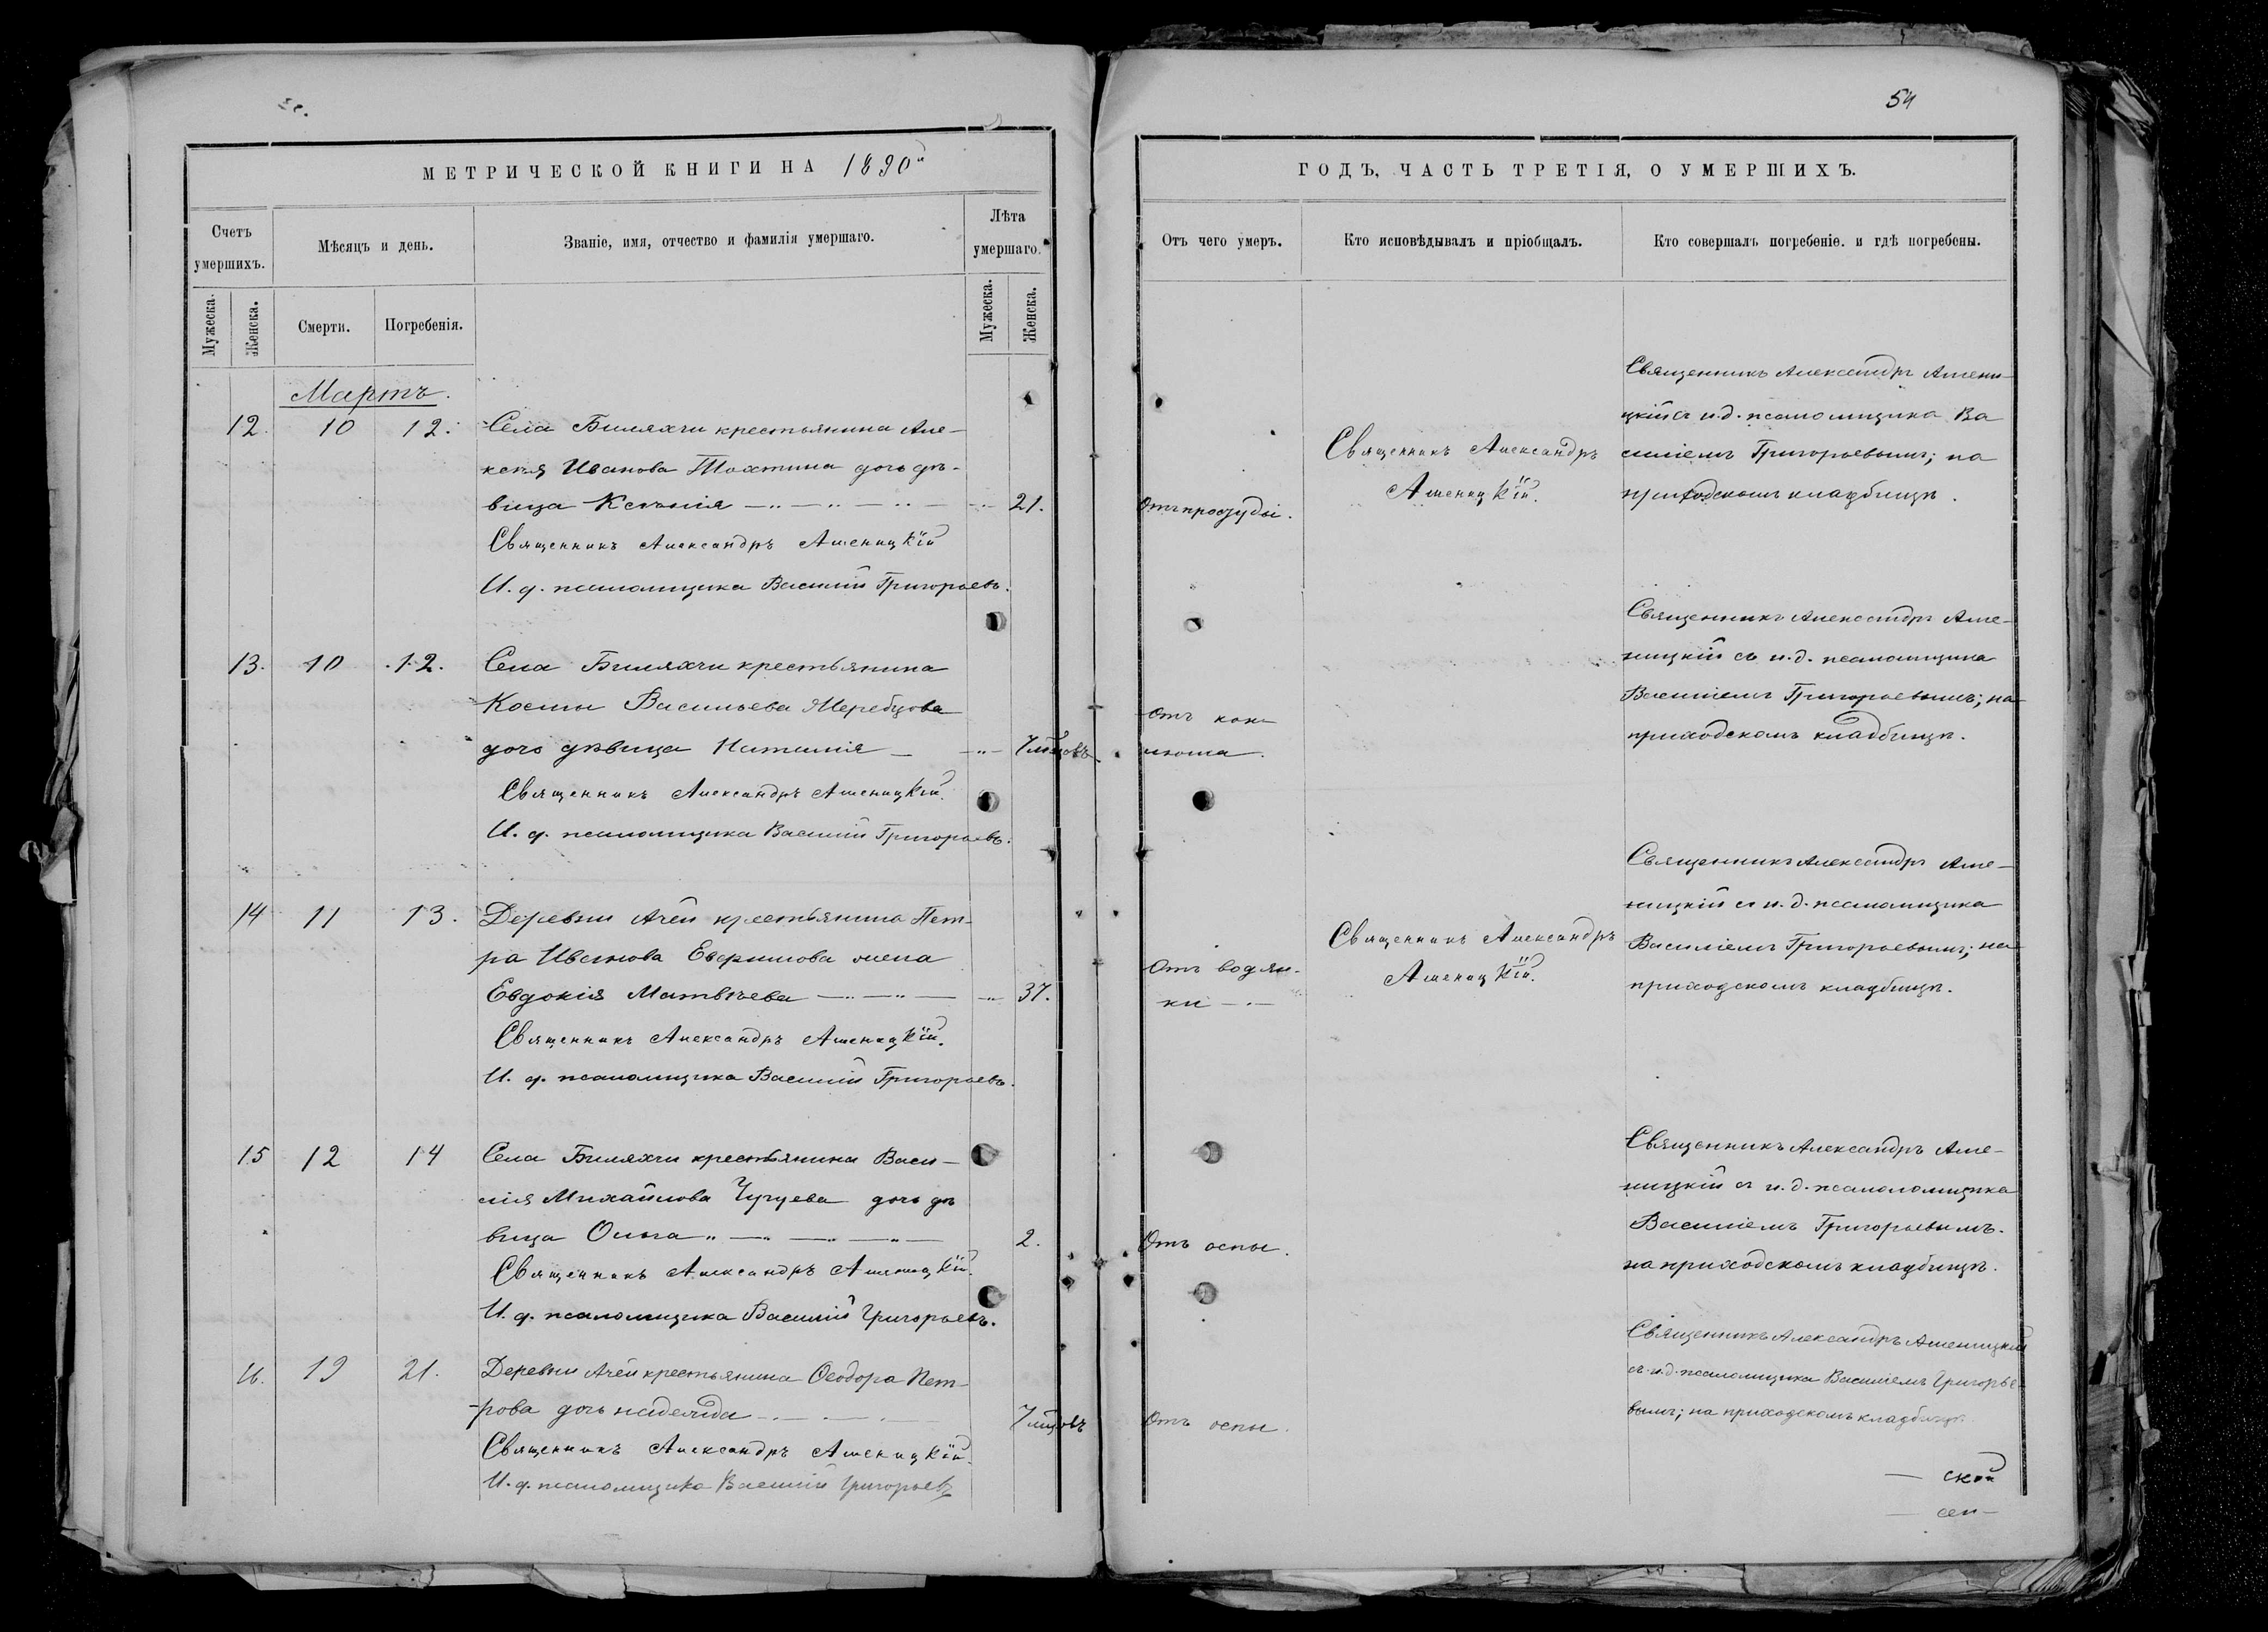 54
МЕТРИЧЕСКОЙ КНИГИ НА 1890й
ГОДЪ, ЧАСТЬ ТРЕТІЯ, О УМЕРШИХЪ.
Счетъ умершихъ.
Мѣсяцъ и день.
Званіе, имя, отчество и фамилія умершаго.
Лѣта умершаго.
Отъ чего умеръ.
Кто исповѣдывалъ и пріобщалъ.
Кто совершалъ погребеніе. и гдѣ погребены.
Мужеска.
Женска.
Смерти.
Погребенія.
Мужеска.
Женска.
Мартъ.
12. 10 12. Села Биляхчи крестьянина Але-
ксѣя Иванова дочь дѣ-
вица Ксенія 21.
Священникъ Александръ Ашеницкій
И. д. псаломщика Василий Григорьевъ.
Отъ простуды.
Священникъ Александръ
Ашеницкій.
Священникъ Александръ Ашени-
цкій съ и.д. псаломщика Ва
силіемъ Григорьевымъ; на
приходскомъ кладбищѣ.
13. 10 12. Села Биляхчи крестьянина
Космы Васильева Жеребцова
дочь дѣвица Наталия 7 мѣсцовъ
Священникъ Александръ Ашеницкій.
И. д. псаломщика Василий Григорьевъ.
Отъ кок-
люша.
Священникъ Александръ Аше-
ницкій съ и.д. псаломщика
Василіемъ Григорьевымъ; на
приходскомъ кладбищѣ.
14 11 13. Деревни Ачей крестьянина Пет-
ра Иванова Ефимова жена
Евдокія Матвѣева 37.
Священникъ Александръ Ашеницкій.
И. д. псаломщика Василий Григорьевъ.
Отъ водян-
ки
Священникъ Александръ
Ашеницкій.
Священникъ Александръ Аше-
ницкій съ и.д. псаломщика
Василіемъ Григорьевымъ; на
приходскомъ кладбищѣ.
15 12 14 Села Биляхчи крестьянина Васи-
лія Михайлова Чугуева дочь дѣ
вица Ольга 2.
Священникъ Александръ Ашеницкій.
И. д. псаломщика Василий Григорьевъ.
Отъ оспы.
Священникъ Александръ Аше-
ницкій съ и.д. псаломщика
Василіемъ Григорьевымъ.
на приходскомъ кладбищѣ.
16. 19 21. Деревни Ачей крестьянина Ѳеодора Пет-
рова дочь Надежда 7 мѣсцовъ
Священникъ Александръ Ашеницкій.
И. д. псаломщика Василий Григорьевъ
Отъ оспы.
Священникъ Александръ Ашеницкій
съ и.д. псаломщика Василіемъ Григорье-
вымъ; на приходскомъ кладбищѣ.
— ской